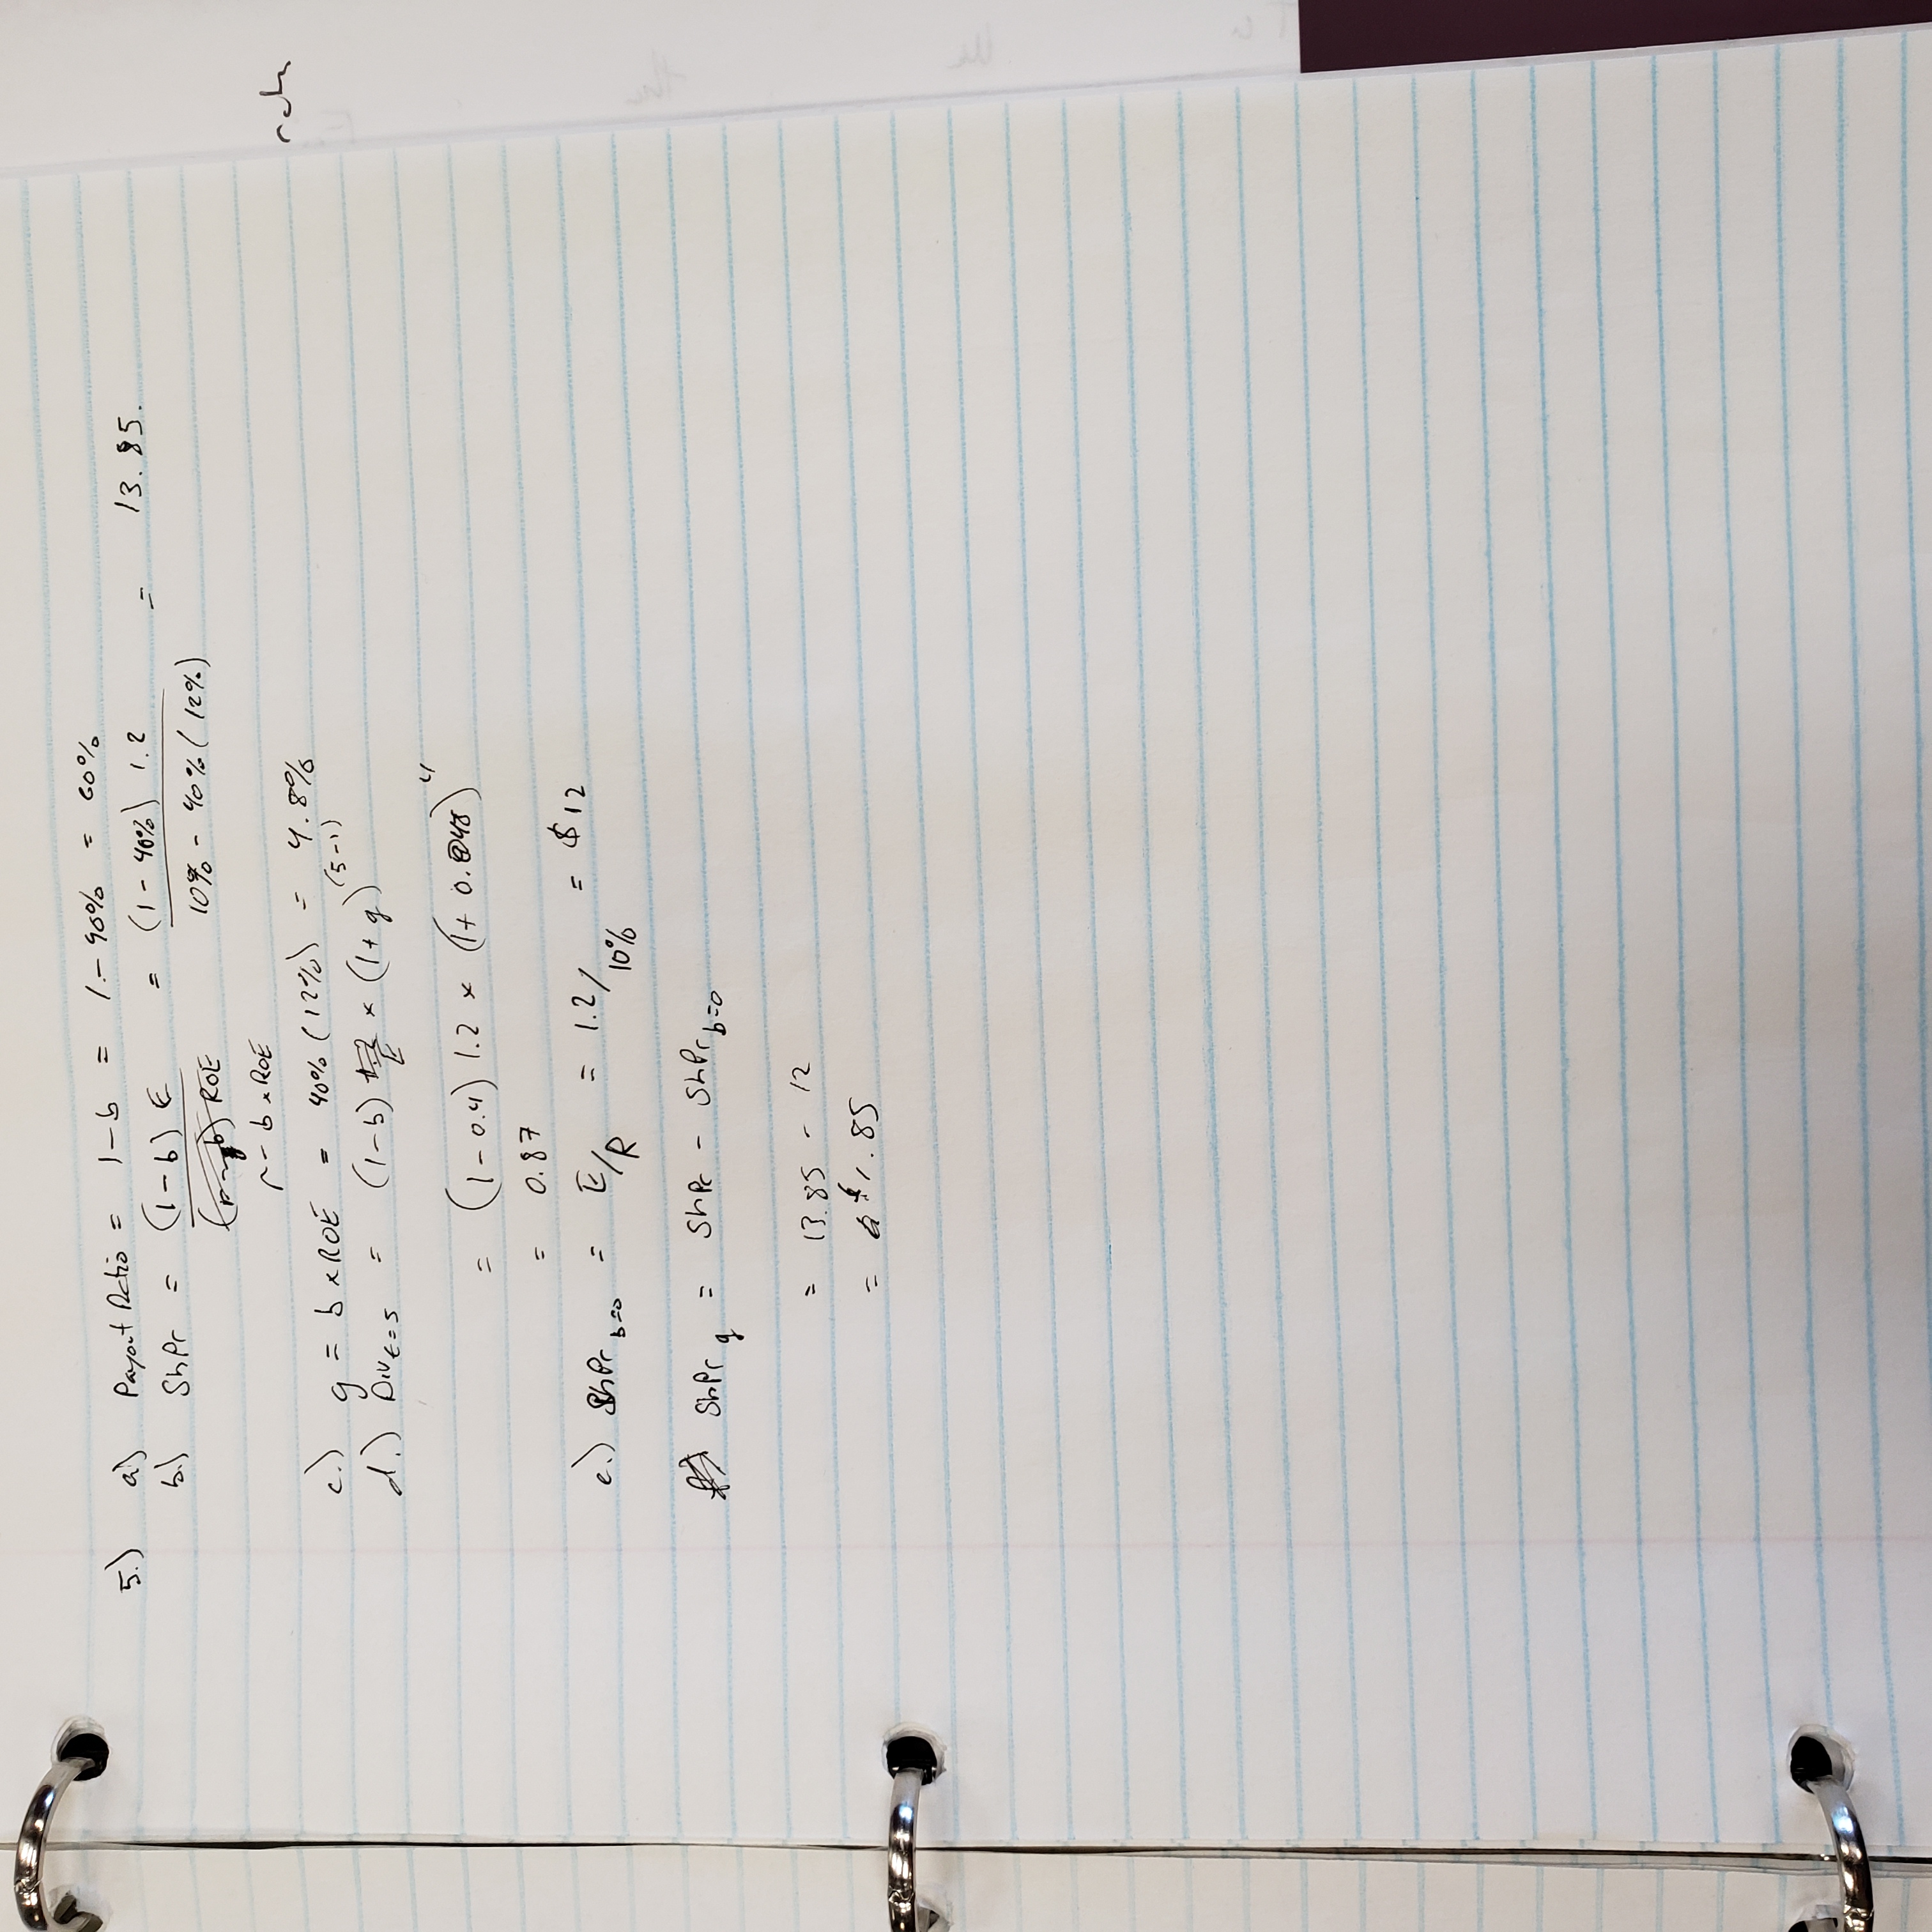 5.) a.) Payout Ratio = 1-b = 1-40% = 60%
b.) ShPr = (1-b) E / r - b x ROE = (1-40%) 1.2 / 10% - 40% (12%) = 13.85.
c.) g = b x ROE = 40% (12%) = 4.8%
d.) Div t=5 = (1-b) E x (1+g)^(5-1)
= (1-0.4) 1.2 x (1+0.048)^4
= 0.87
e.) ShPr b=0 = E/R = 1.2/10% = $12
ShPr g = ShPr - ShPr b=0
= 13.85 - 12
= $1.85